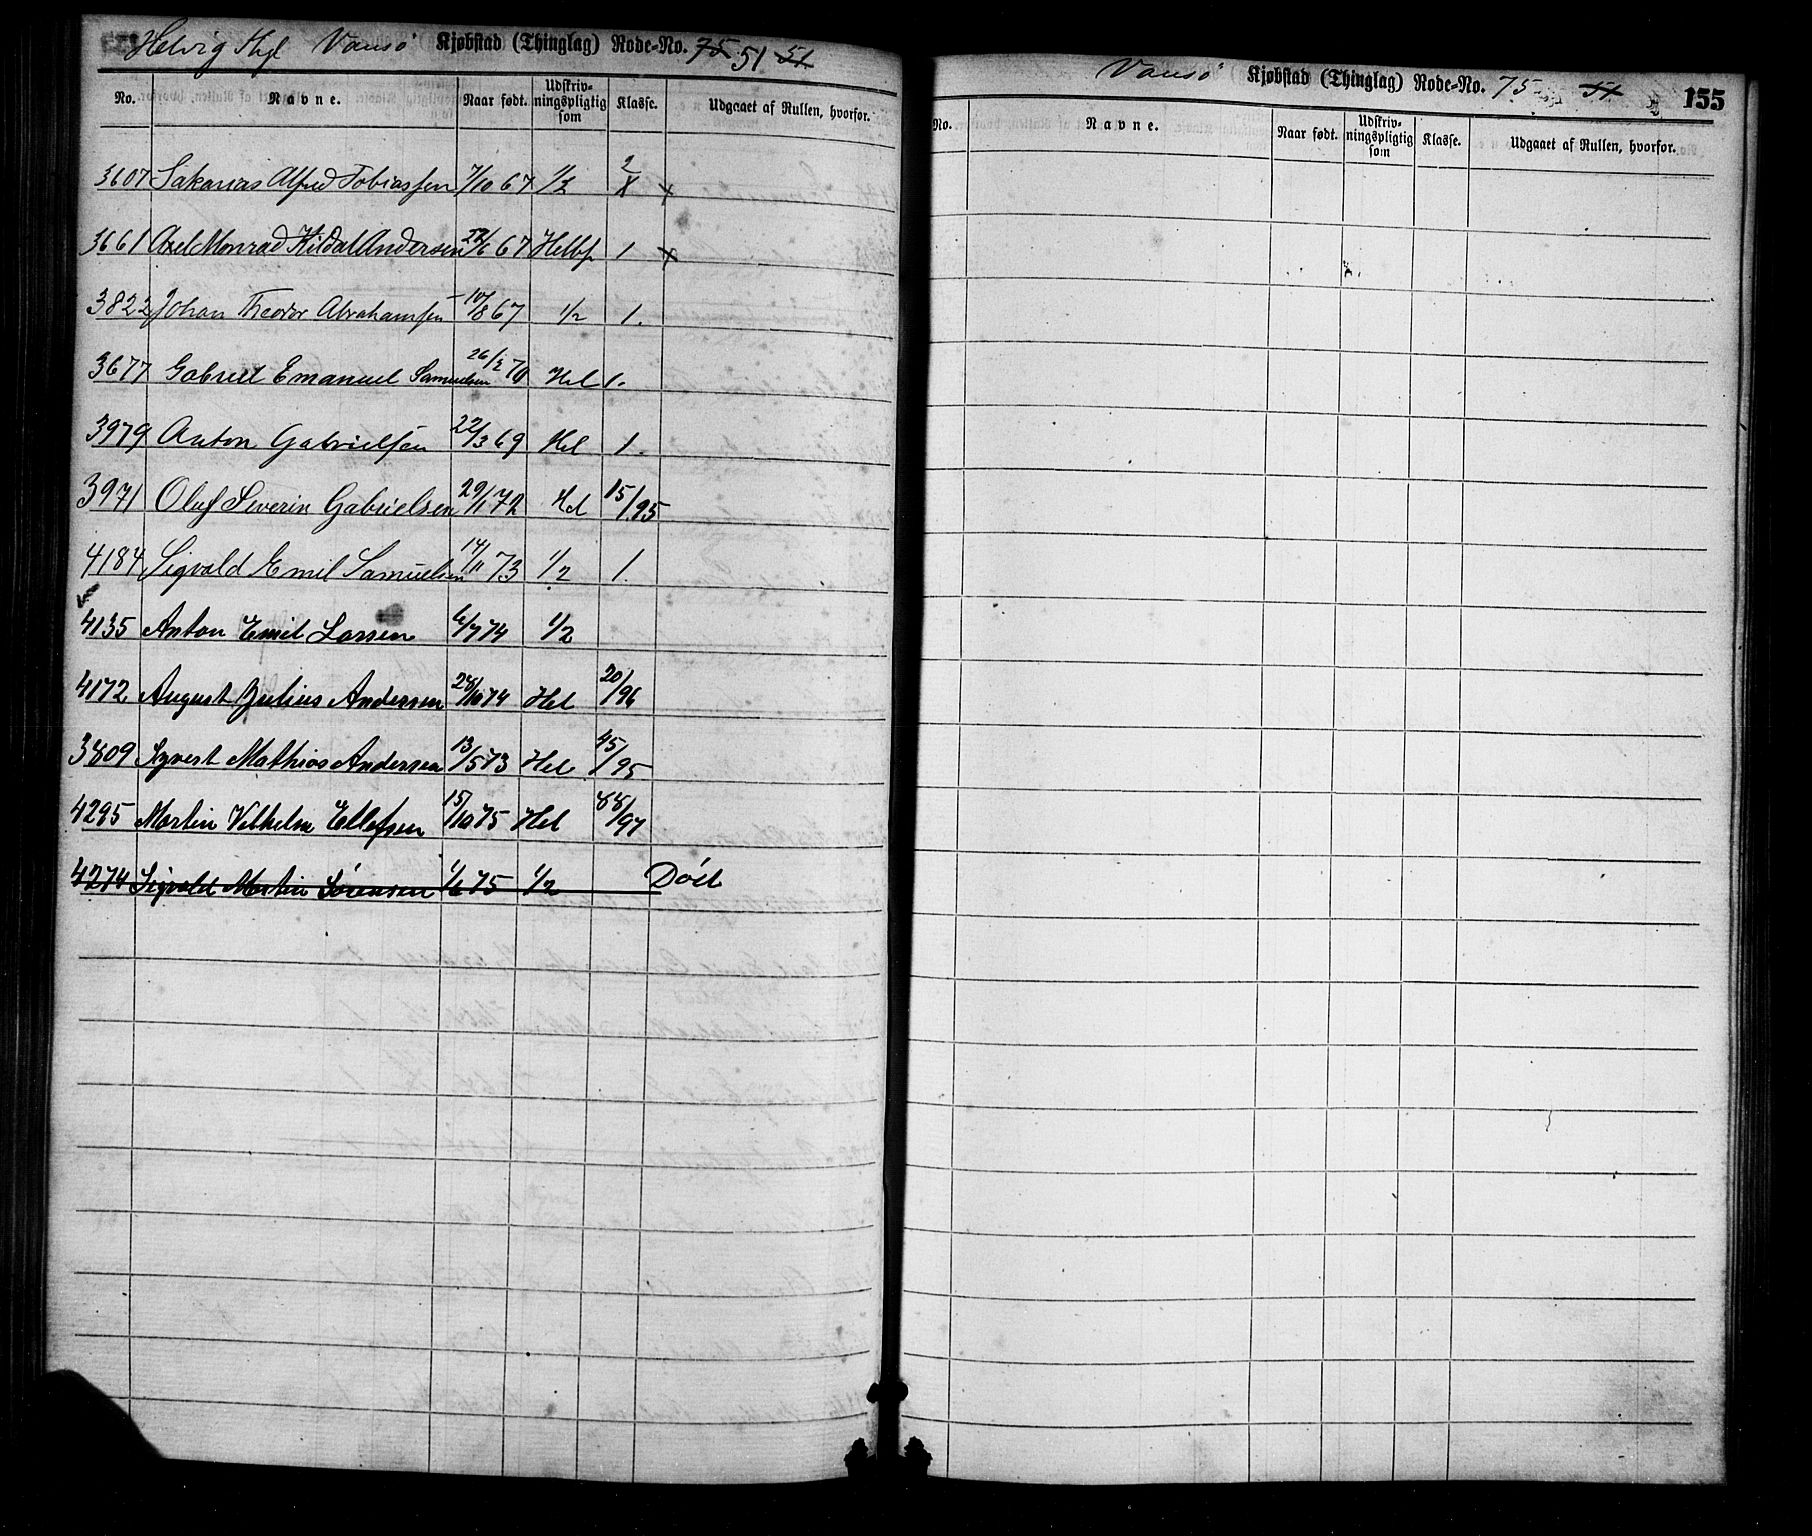 Helvig Skjl Vansø Kjøbstad (Thinglag) Rode-No. 75 51 51
No. Navne. Naar født. Udskriv-ningspligtig som Klasse. Udgaaet af Rullen, hvorfor.
3607 Sakarias Alfred Tobiassen 7/10 67 1/2 2 X x
3661 Axel Monrad Kildal Andersen 22/6 67 Helbf 1 x
3822 Johan Theodor Abrahamsen 10/8 67 1/2 1.
3677 Gabriel Emanuel Samuelsen 26/2 70 Hel 1.
3979 Anton Gabrielsen 22/3 69 Hel 1.
3971 Oluf Severin Gabrielsen 29/1 72 Hel 15/95
4184 Sigvald Emil Samuelsen 14/11 73 1/2 1.
4135 Anton Emil Larsen 6/7 74 1/2
4172 August Julius Andersen 28/10 74 Hel 20/96
3809 Syvert Mathias Andersen 13/5 73 Hel 45/95
4295 Martin Vilhelm Ellefsen 15/10 75 Hel 88/97
4274 Sigvald Martin Sørensen 1/6 75 1/2 Död
Vansø Kjøbstad (Thinglag) Rode-No. 75 51 155
No. Navne. Naar født. Udskriv-ningspligtig som Klasse. Udgaaet af Rullen, hvorfor.